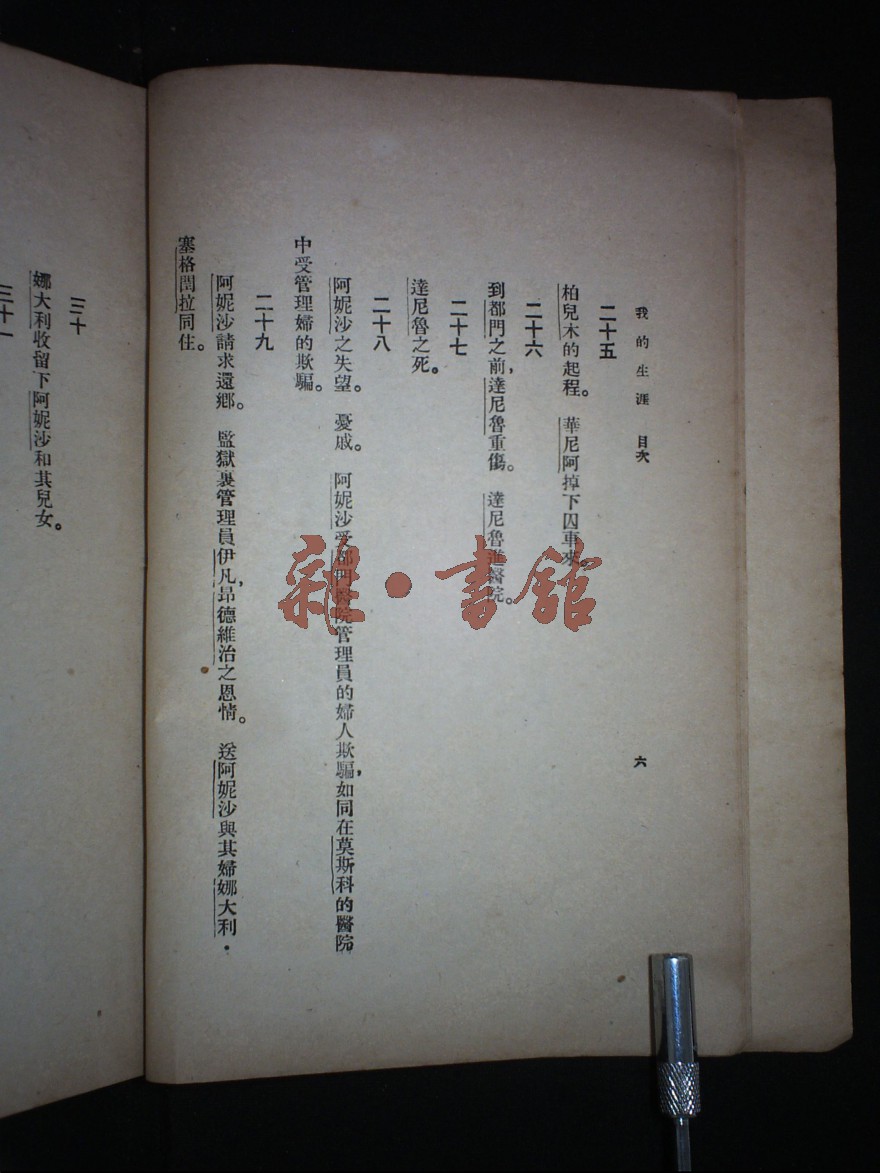 我的生涯 目次
六
二十五
柏兒木的起程。 華尼阿掉下囚車來。
二十六
到都門之前，達尼魯重傷。 達尼魯進醫院。
二十七
達尼魯之死。
二十八
阿妮沙之失望。 憂戚。 阿妮沙受都門醫院管理員的婦人欺騙，如同在莫斯科的醫院
中受管理婦的欺騙。
二十九
阿妮沙請求還鄉。 監獄裏管理員伊凡，昂德維治之恩情。 送阿妮沙與其婦娜大利·
塞格閏拉同住。
三十
娜大利收留下阿妮沙和其兒女。
三十一
雜·書館